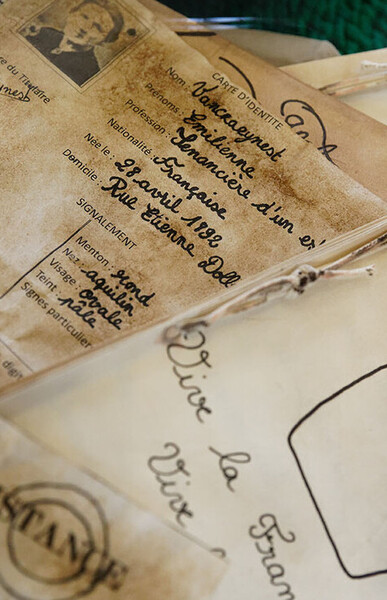 re du Titulaire
CARTE D'IDENTITE
Nom: Vancraeynest
Prénoms: Emilienne
Profession: Tenancière d'un es
Nationalité: Française
Née le: 28 avril 1892
Domicile: Rue Etienne Doll
SIGNALEMENT
Menton: rond
Nez: aquilin
Visage: ovale
Teint: pâle
Signes particulier
digi
Vive la Fran
Vive
STANCE